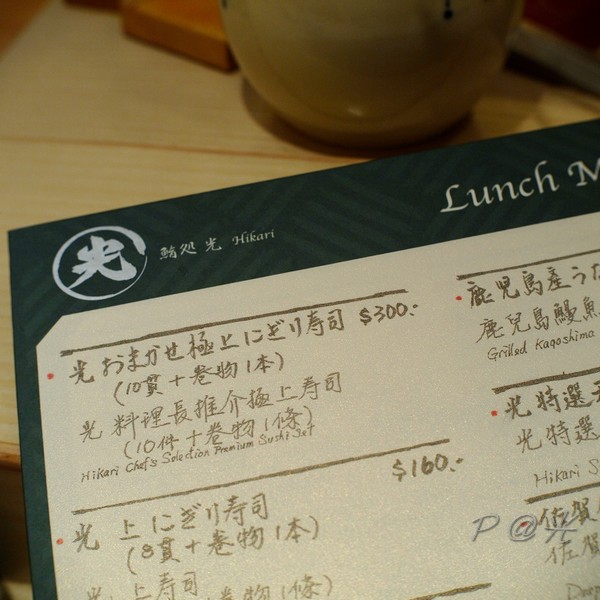 Lunch M
光
鮨処 光 Hikari
光 おまかせ極上にぎり寿司 $300.-
(10貫+巻物1本)
光 料理長推介極上寿司
(10件+巻物1條)
Hikari Chef's Selection Premium Sushi Set
$160.-
光 上にぎり寿司
(8貫+巻物1本)
光 上寿司
巻物1條)
鹿児島産うな
鹿兒島鰻魚
Grilled Kagoshima
光特選
光特選
Hikari S
佐賀
佐賀
Deep
P @光